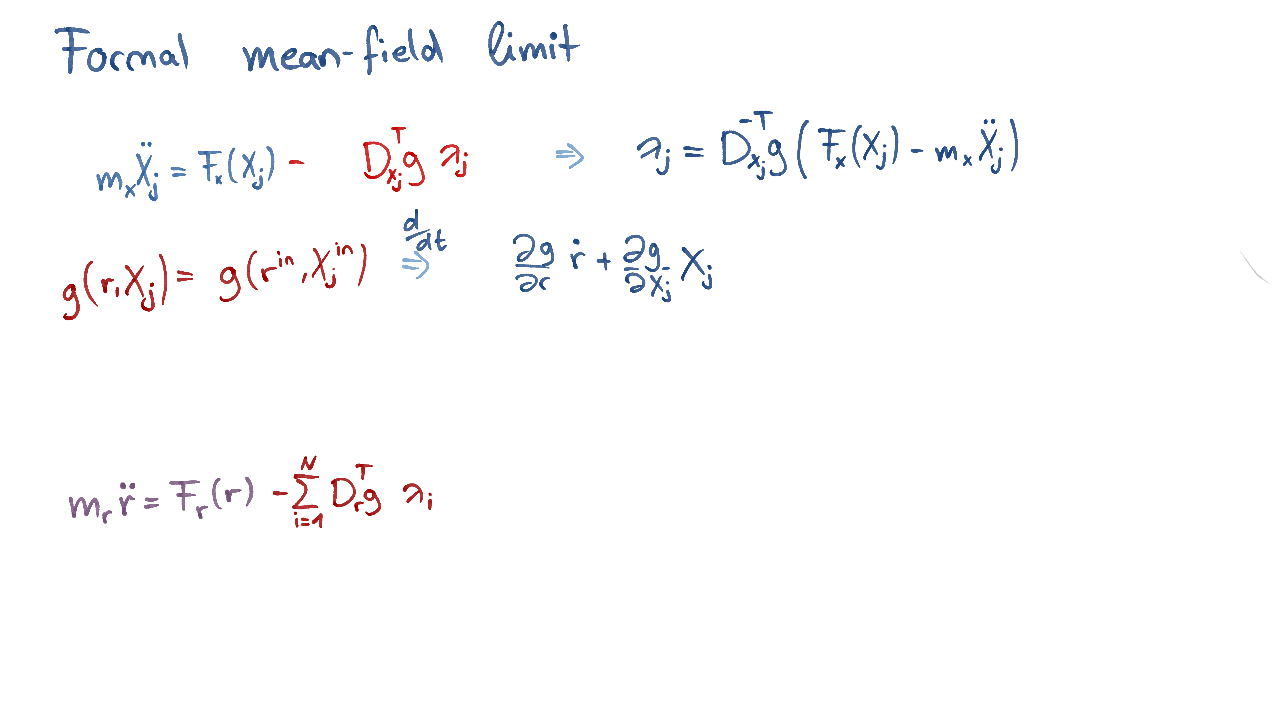 Formal mean-field limit
m_x Ẍ_j = F_x(X_j) - D_{x_j}^T g λ_j ⇒ λ_j = D_{x_j}^{-T} g ( F_x(X_j) - m_x Ẍ_j )
g(r, X_j) = g(r^{in}, X_j^{in}) d/dt ⇒ ∂g/∂r ṙ + ∂g/∂X_j X_j
m_r r̈ = F_r(r) - ∑_{i=1}^N D_r^T g λ_i